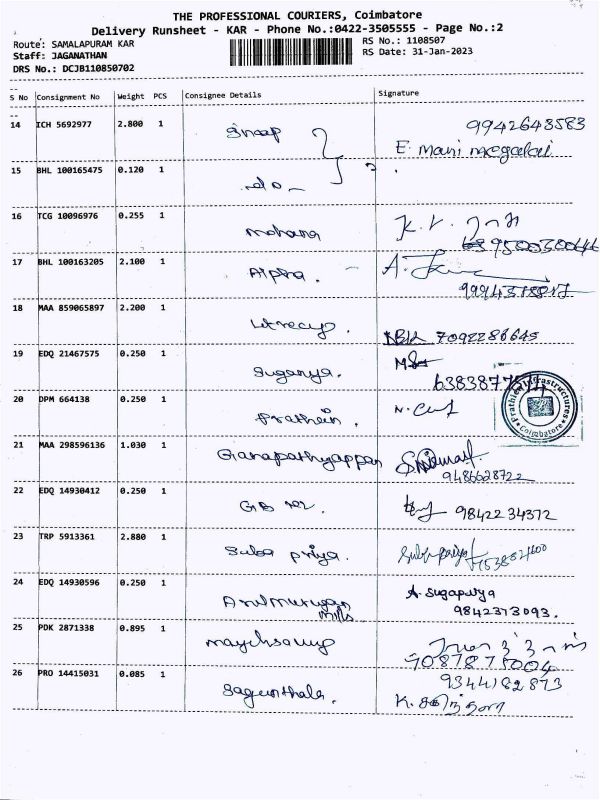 THE PROFESSIONAL COURIERS, Coimbatore
Delivery Runsheet - KAR - Phone No.:0422-3505555 - Page No.:2
Route: SAMALAPURAM KAR
RS No.: 1108507
Staff: JAGANATHAN
RS Date: 31-Jan-2023
DRS No.: DCJB110850702
S No Consignment No Weight PCS Consignee Details Signature
14 ICH 5692977 2.800 1 9942648583
E. Mani megalai
15 BHL 100165475 0.120 1 do
16 TCG 10096976 0.255 1 mohana
17 BHL 100163205 2.100 1 Alpha.
18 MAA 859065897 2.200 1 7092286645
19 EDQ 21467575 0.250 1 Suganya.
20 DPM 664138 0.250 1
Prathiein Infrastructures
Coimbatore
21 MAA 298596136 1.030 1 Ganapathyappan
9486628722
22 EDQ 14930412 0.250 1 9842234372
23 TRP 5913361 2.880 1 Suba priya. Suba priya
24 EDQ 14930596 0.250 1 Arulmurugan mills A. Sugapriya
9842373093.
25 PDK 2871338 0.895 1
26 PRO 14415031 0.085 1 Sagunthala. 9344182873